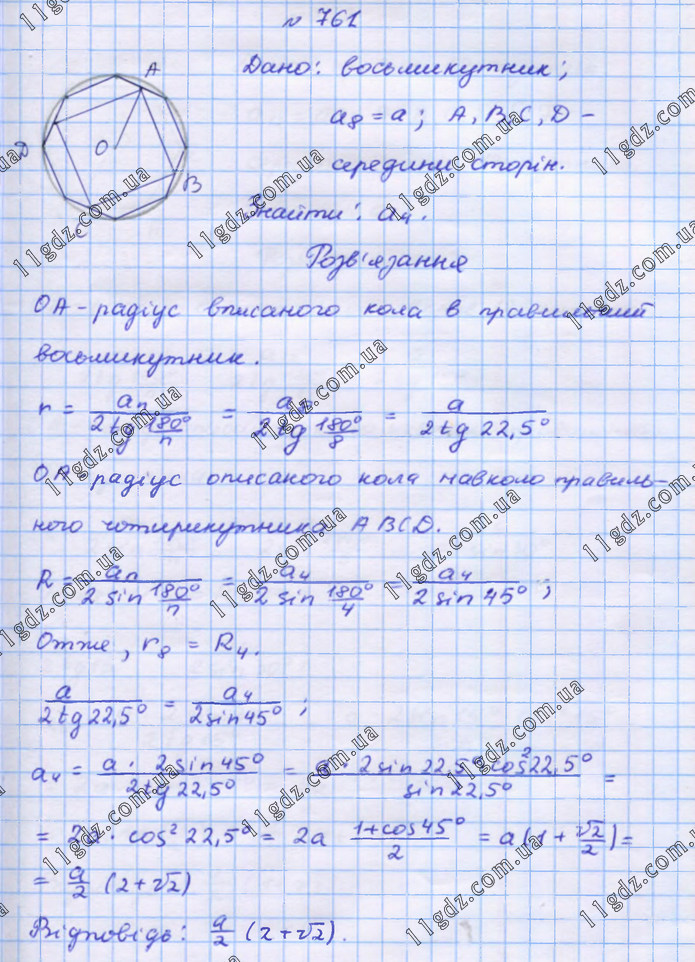 № 761
Дано: восьмикутник;
a₈ = a; A, B, C, D –
середини сторін.
Знайти: a₄.
Розв'язання
A
B
C
D
O
OA - радіус вписаного кола в правильний
восьмикутник.
r = aₙ / (2tg 180°/n) = a₈ / (2tg 180°/8) = a / (2tg 22,5°)
OA - радіус описаного кола навколо правиль-
ного чотирикутника ABCD.
R = aₙ / (2 sin 180°/n) = a₄ / (2 sin 180°/4) = a₄ / (2 sin 45°);
Отже, r₈ = R₄.
a / (2tg 22,5°) = a₄ / (2 sin 45°);
a₄ = (a · 2 sin 45°) / (2tg 22,5°) = (a · 2 sin 22,5° cos² 22,5°) / (sin 22,5°) =
= 2a · cos² 22,5° = 2a (1 + cos 45°) / 2 = a(1 + √2/2) =
= a/2 (2 + √2)
Відповідь: a/2 (2 + √2).
11gdz.com.ua